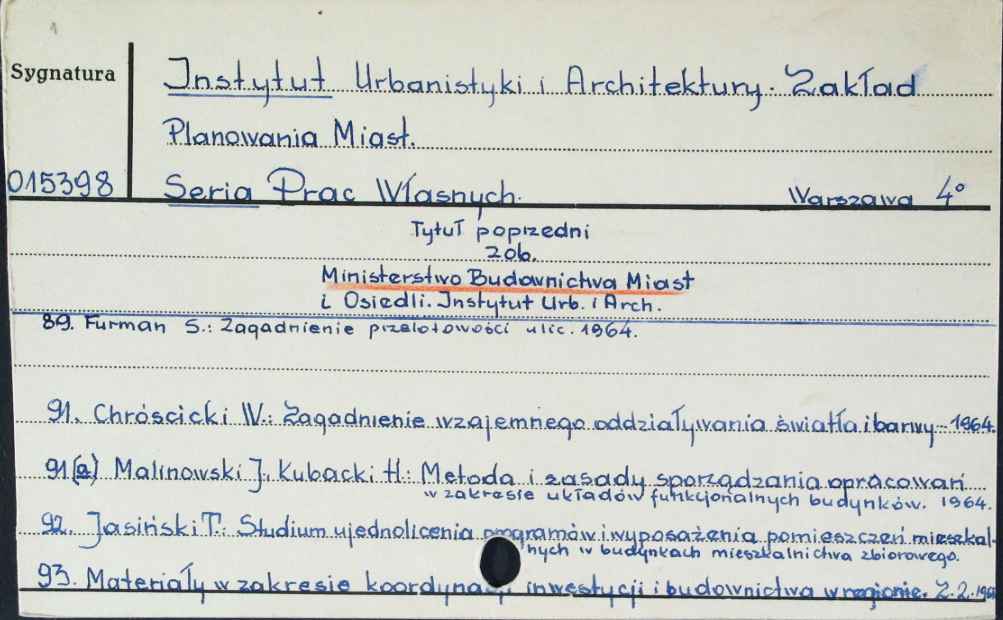 Sygnatura
Instytut Urbanistyki i Architektury. Zakład
Planowania Miast.
015398
Seria Prac Własnych.
Warszawa 4°
Tytuł poprzedni
zob.
Ministerstwo Budownictwa Miast
i Osiedli. Instytut Urb. i Arch.
89. Furman S.: Zagadnienie przelotowości ulic. 1964.
91. Chróścicki W.: Zagadnienie wzajemnego oddziaływania światła i barwy.- 1964.
91(a) Malinowski J., Kubacki H.: Metoda i zasady sporządzania opracowań
w zakresie układów funkcjonalnych budynków. 1964.
92. Jasiński T.: Studium ujednolicenia programów i wyposażenia pomieszczeń mieszkal-
nych w budynkach mieszkalnictwa zbiorowego.
93. Materiały w zakresie koordynacji inwestycji i budownictwa w regionie. Z. 2.